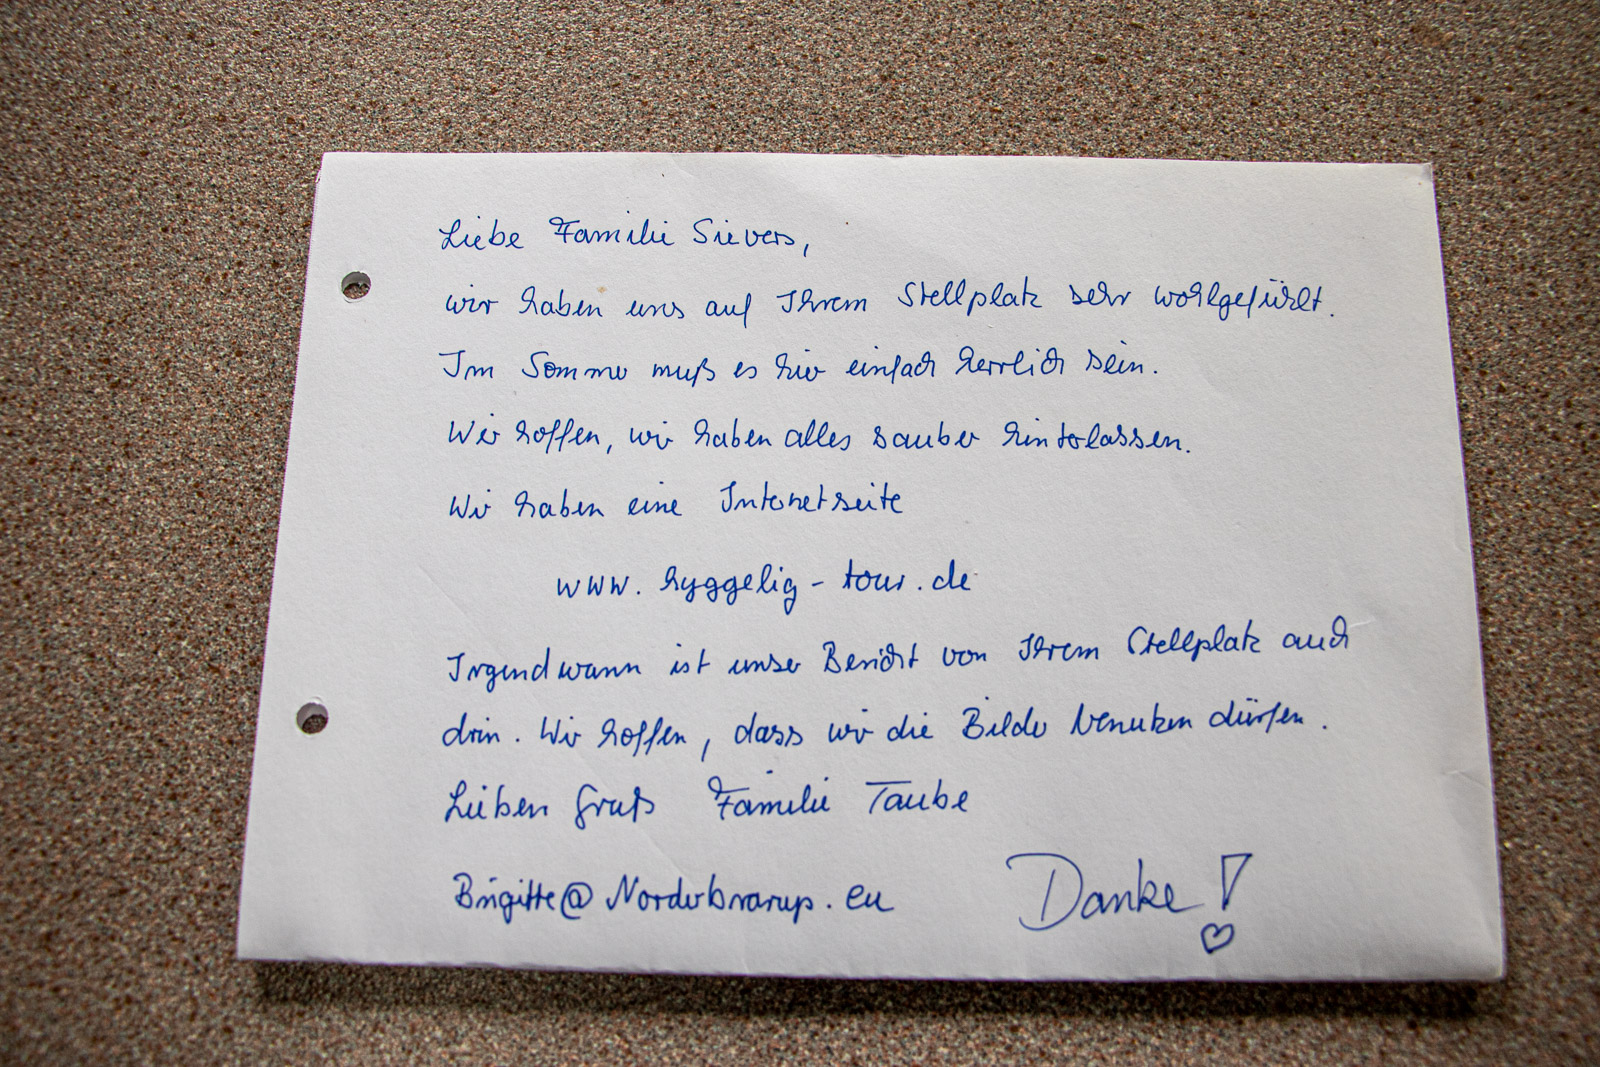 Liebe Familie Sievers,
wir haben uns auf Ihrem Stellplatz sehr wohlgefühlt.
Im Sommer muß es hier einfach herrlich sein.
Wir hoffen, wir haben alles sauber hinterlassen.
Wir haben eine Internetseite
www.hyggelig-tour.de
Irgendwann ist unser Bericht von Ihrem Stellplatz auch
drin. Wir hoffen, dass wir die Bilder benutzen dürfen.
Lieben Gruß Familie Taube
Brigitte@Norderbrarup.eu Danke!
♡